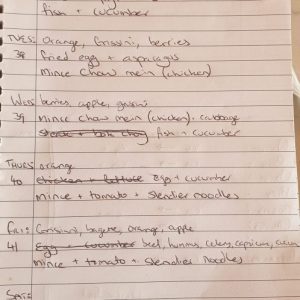 fish + cucumber
TUES: Orange, Grissini, berries
39 fried egg + asparagus
Mince Chow mein (chicken)
WEDS: berries, apple, grissini
39 Mince Chow mein (chicken), cabbage
steak + bok choy fish + cucumber
THURS: orange
40 chicken + lettuce egg + cucumber
mince + tomato + Slendier noodles
FRI: Grissini, orange, apple
41 Egg + cucumber beef, hummus, celery, capsicum, cucum
Mince + tomato + Slendier Noodles